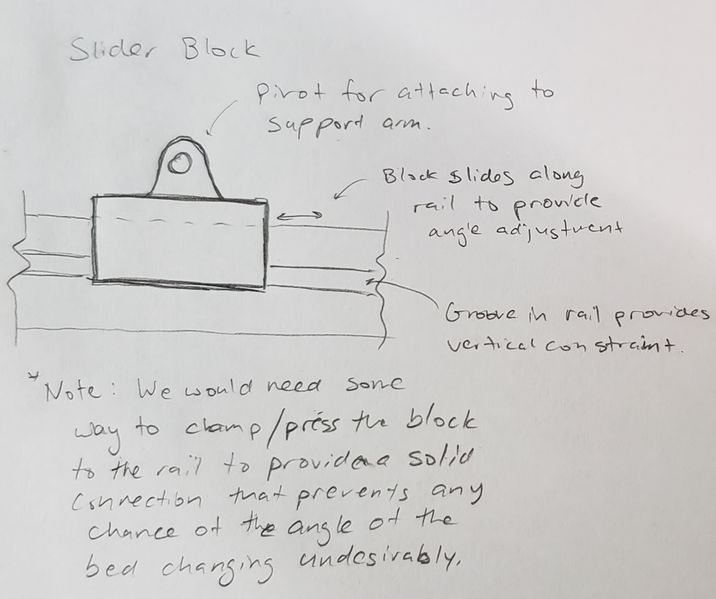 Slider Block
Pivot for attaching to
support arm.
Block slides along
rail to provide
angle adjustment
Groove in rail provides
vertical constraint.
*Note: We would need some
way to clamp/press the block
to the rail to provide a solid
connection that prevents any
chance of the angle of the
bed changing undesirably.